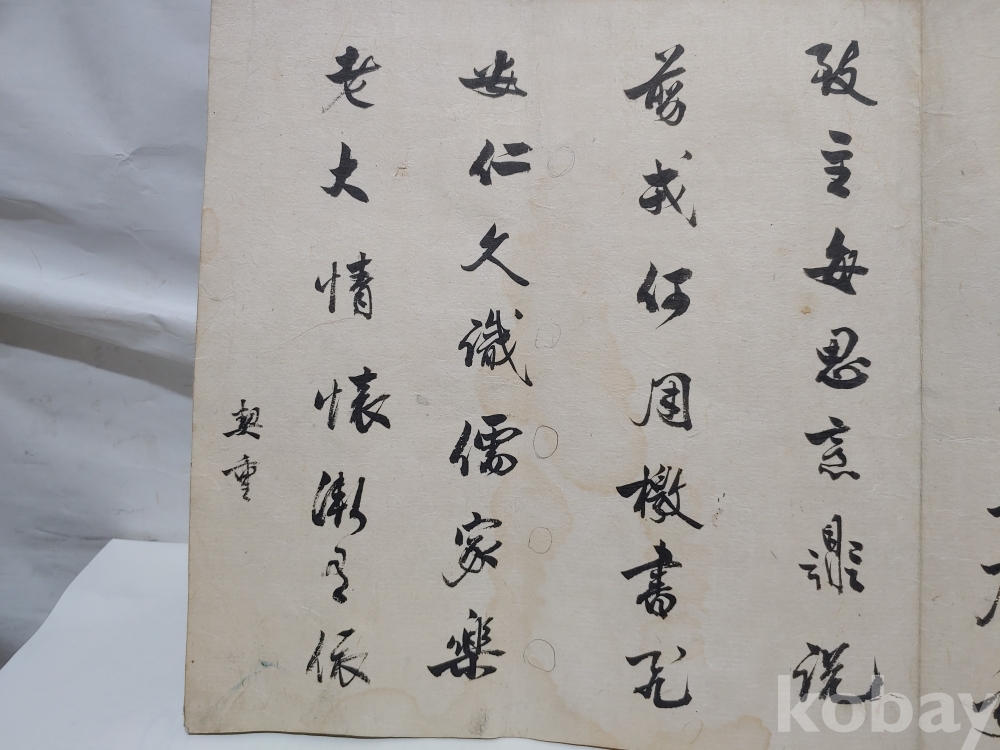 致主每思意 說
剪戎何用檄書飛
安仁久識儒家樂
老大情懷漸有依
契重
kobay